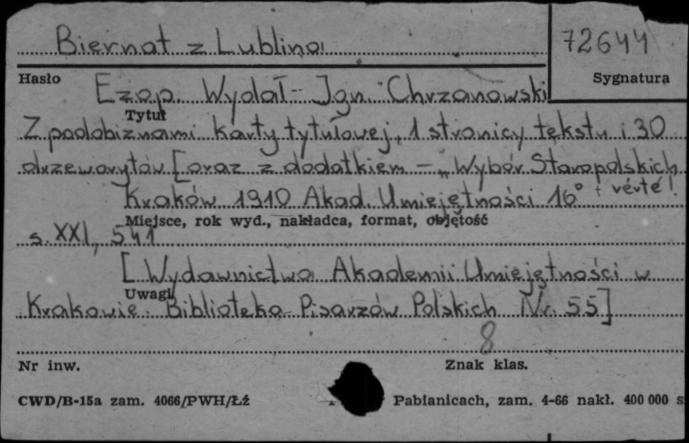 Biernat z Lublina
72644
Hasło
Sygnatura
Ezop. Wydał Ign. Chrzanowski
Tytuł
Z podobiznami karty tytułowej, 1 stronicy tekstu i 30
drzeworytów [oraz z dodatkiem – „Wybór Staropolskich
Kraków 1910 Akad. Umiejętności 16°
Miejsce, rok wyd., nakładca, format, objętość
s. XXI, 541
[Wydawnictwa Akademii Umiejętności w
Uwagi
Krakowie. Biblioteka Pisarzów Polskich Nr. 55]
8
Nr inw.
Znak klas.
CWD/B-15a zam. 4066/PWH/Łź
Pabianicach, zam. 4-66 nakł. 400 000 s